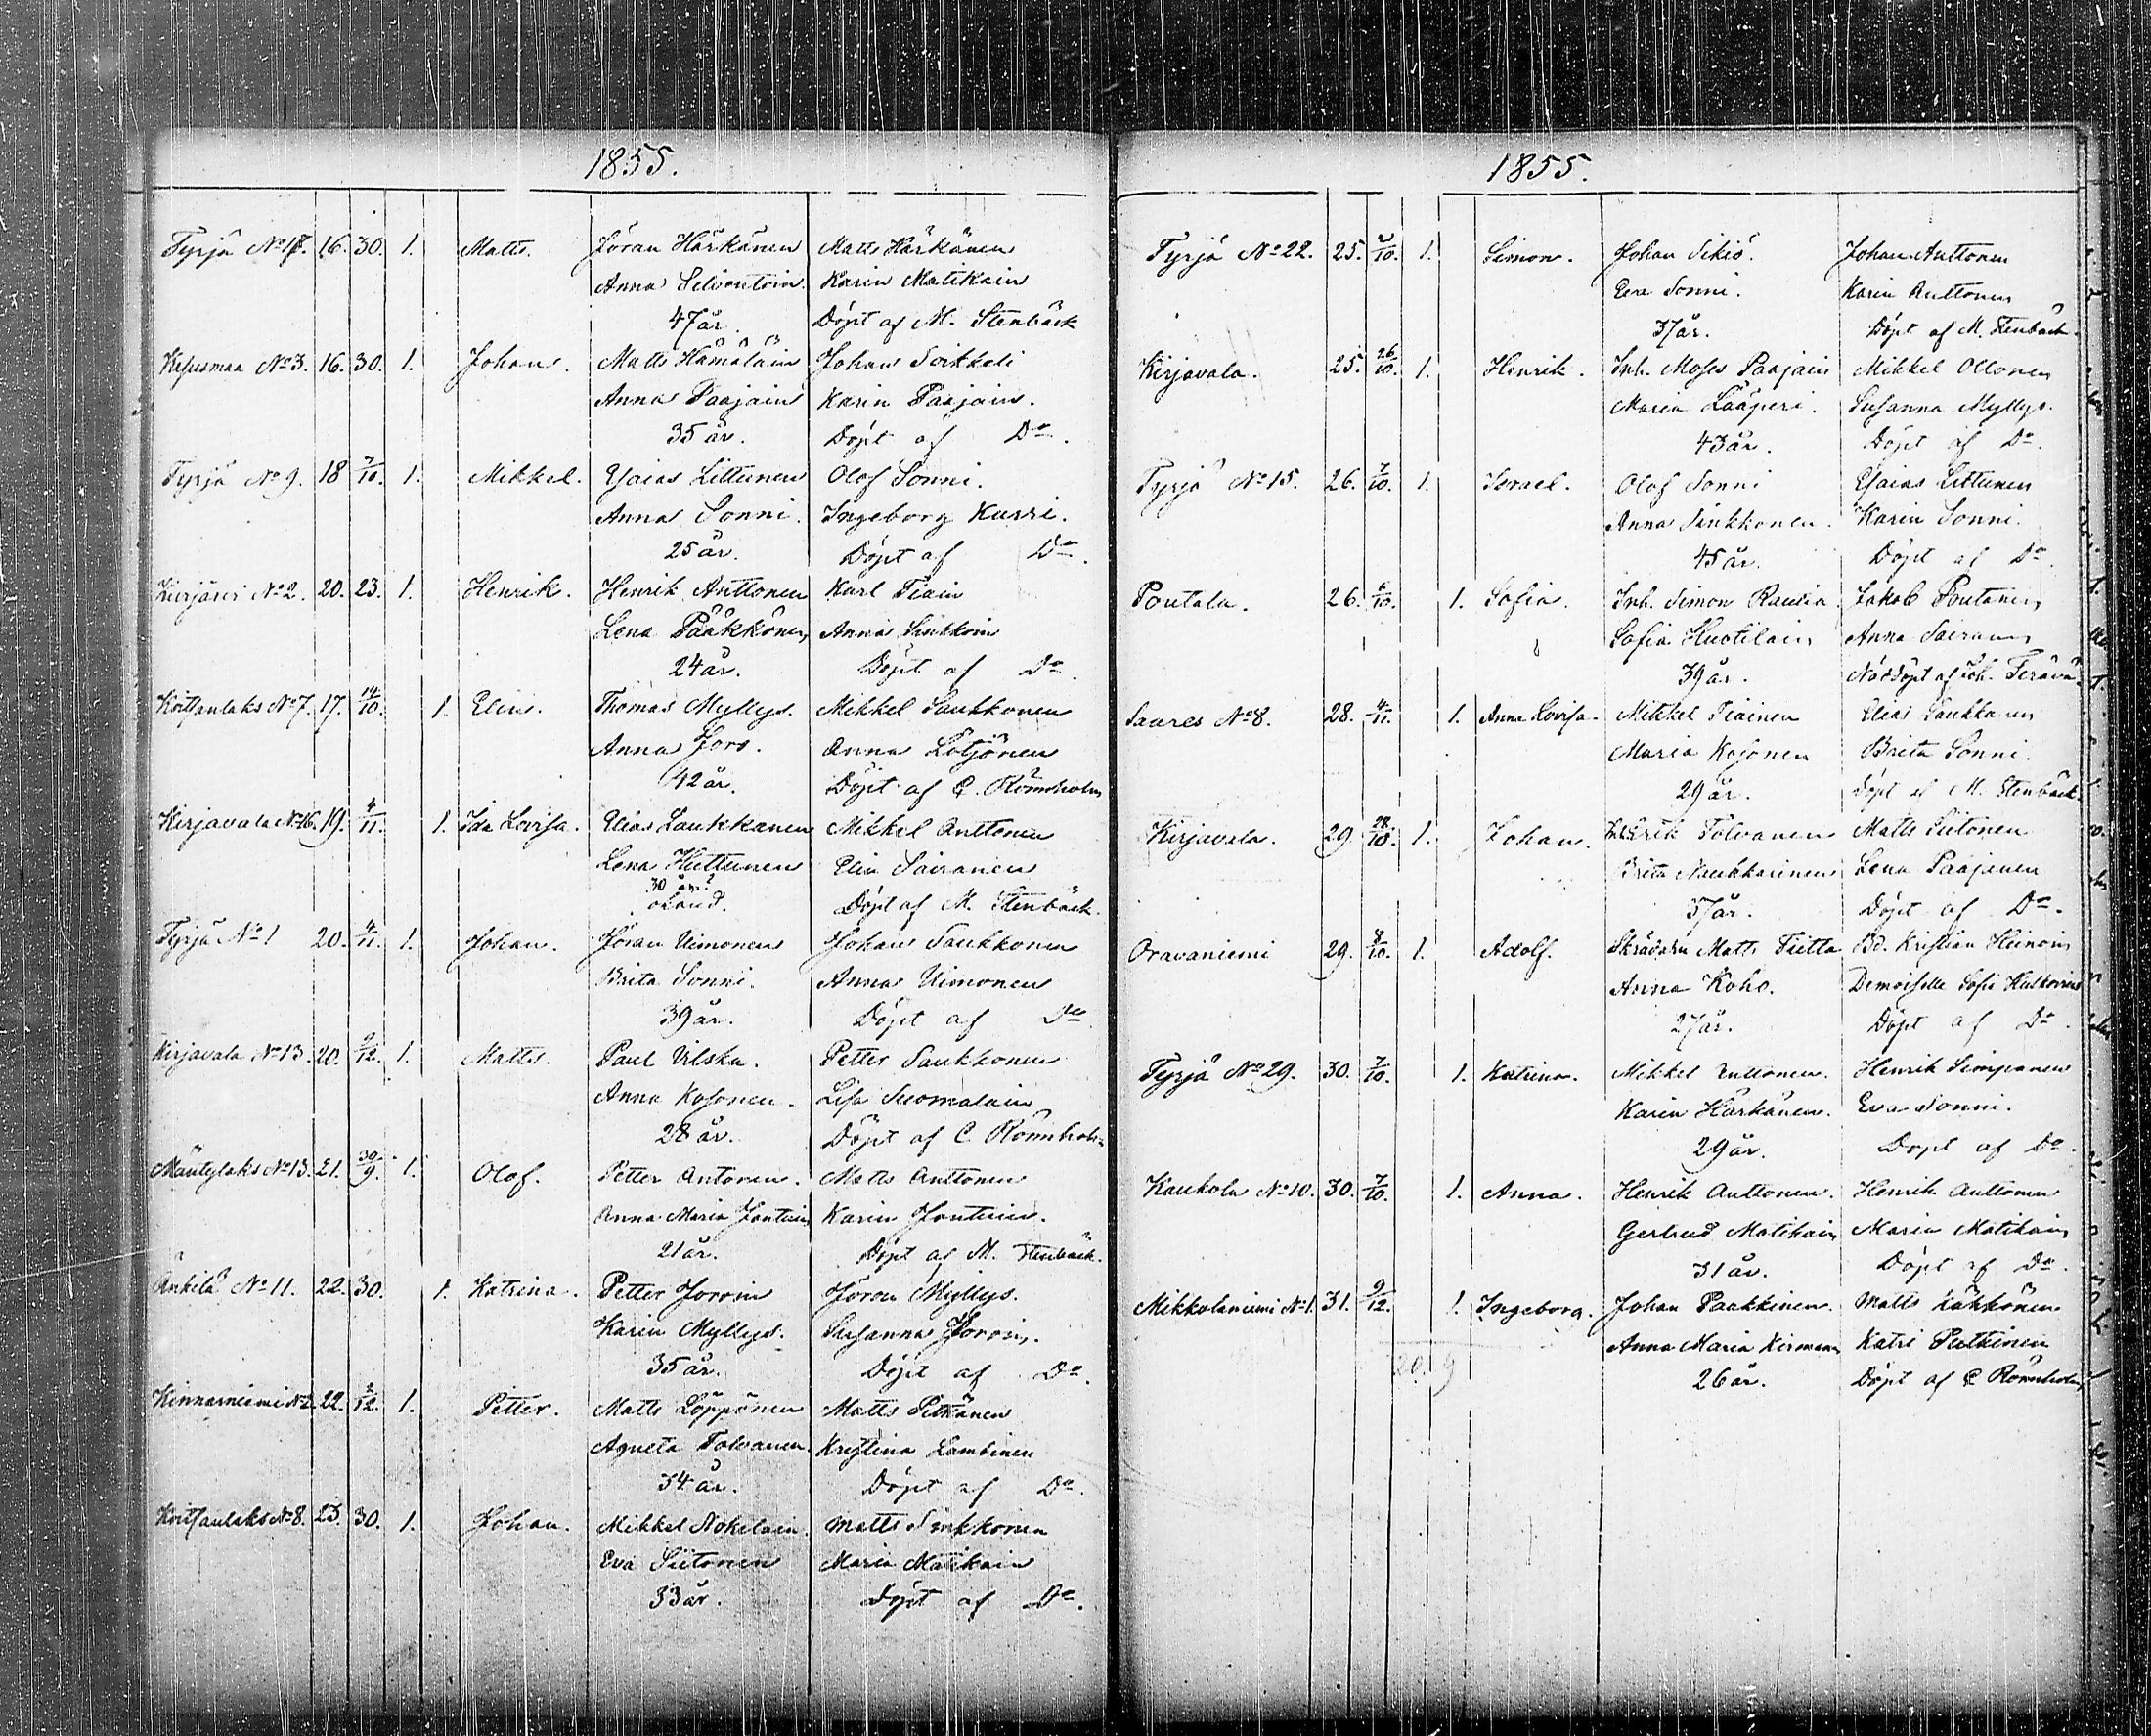 1855.
Tyrjä No 17. 16. 30. 1. Matts. Jöran Härkänen Matts Härkänen
Anna Silventoin. Karin Matikain
47 år. Döpt af M. Stenbäck
Kesusmaa No 3. 16. 30. 1. Johan. Matts Hämäläin Johan Soikkeli
Anna Paajain Karin Paajain.
35 år. Döpt af Do.
Tyrjä No 9. 18 7/10. 1. Mikkel. Esaias Littunen Olof Sonni.
Anna Sonni. Ingeborg Kurri.
25 år. Döpt af Do.
No 2. 20. 23. 1. Henrik. Henrik Anttonen Karl Tiain
Lena Pääkkönen Anna Sinkkoin
24 år. Döpt af Do.
Koitsanlaks No 7. 17. 14/10. 1. Elin. Thomas Myllys. Mikkel Saukkonen
Anna Joro. Anna Lötjönen
42 år. Döpt af C. Rönnholm
Kirjavala No 16. 19. 4/11. 1. Ida Lovisa. Elias Laukkanen Mikkel Anttonen
Lena Huttunen Elin Sairanen
30 år? okänd. Döpt af M. Stenbäck.
Tyrjä No 1 20. 4/11. 1. Johan. Jöran Uimonen Johan Saukkonen
Brita Sonni. Anna Uimonen
39 år. Döpt af Do
Kirjavala No 13. 20. 9/12. 1. Matts. Paul Vilska. Petter Saukkonen
Anna Kosonen. Lisa Suomalain
28 år. Döpt af C Rönnholm
Mäntylaks No 13. 21. 30/9. 1. Olof. Petter Antonen. Matts Anttonen
Anna Maria Karin
21 år. Döpt af M. Stenbäck.
Änkilä No 11. 22. 30. 1. Katrina. Petter Joroin Jöran Myllys.
Karin Myllys. Susanna Joroin.
35 år. Döpt af Do.
Kinnarniemi No 2. 22. 2/12. 1. Petter. Matts Löppönen Matts Pitkänen
Agneta Tolvanen. Kristina Lambinen
34 år. Döpt af Do.
Koitsanlaks No 8. 23. 30. 1. Johan. Mikkel Nokelain. Matts Sinkkonen
Eva Siitonen Maria Matikain
33 år. Döpt af Do.
1855.
Tyrjä No 22. 25. 2/10. 1. Simon. Johan Sikiö. Johan Anttonen
Eva Sonni. Karin Anttonen
37 år. Döpt af M. Stenbäck.
Kirjavala. 25. 26/10. 1. Henrik. Inh. Moses Paajain Mikkel Ollonen
Maria Lääperi. Susanna Myllys.
43 år. Döpt af Do.
Tyrjä No 15. 26. 7/10. 1. Israel. Olof Sonni Esaias Littunen
Anna Sinkkonen. Karin Sonni.
45 år. Döpt af Do.
Poutala. 26. 1. Sofia. Inh. Simon Rautia. Jakob Poutanen
Sofia Huotilain Anna Sairanen
39 år. Nöddöpt af Joh. Terävä.
Saares No 8. 28. 4/11. 1. Anna Lovisa. Mikkel Tiainen Elias Laukkanen
Maria Kosonen Brita Sonni.
29 år. Döpt af M. Stenbäck.
Kirjavala. 29 28/10. 1. Johan. Inh. Erik Tolvanen Matts Siitonen
Brita Naukkarinen Lena Paajanen
37 år. Döpt af Do.
Oravaniemi 29. 1. Adolf. Skrädaren Matts Tiitta Bd. Kristian Heinoin
Anna Koho. Demoiselle Sofie
27 år. Döpt af Do.
Tyrjä No 29. 30. 7/10. 1. Katrina. Mikkel Anttonen. Henrik Simpanen
Karin Härkänen. Eva Sonni.
29 år. Döpt af Do.
Kaukola No 10. 30. 7/10. 1. Anna. Henrik Anttonen. Henrik Anttonen
Gertrud Matikain Maria Matikain
31 år. Döpt af Do.
Mikkolaniemi No 1. 31. 9/12. 1. Ingeborg. Johan Paakkinen. Matts Kähkönen
Anna Maria Kirmanen Katri Putkinen
26 år. Döpt af C Rönnholm